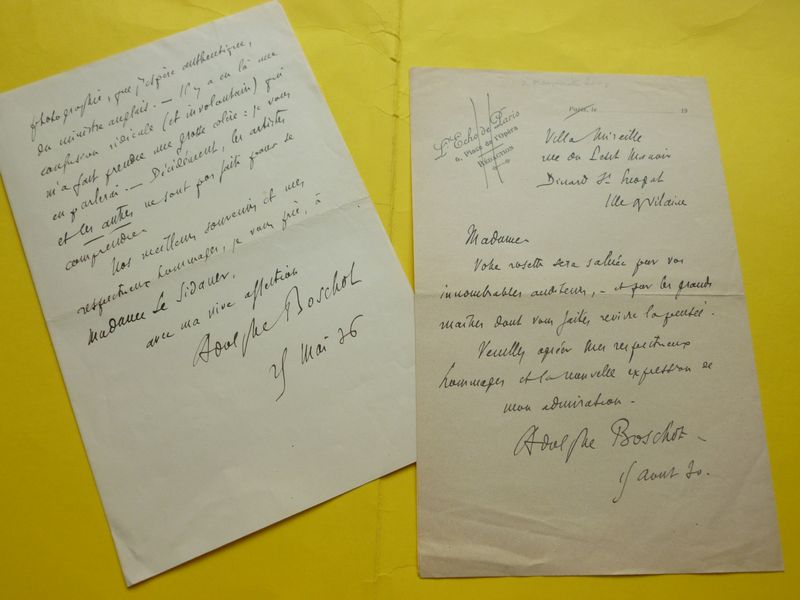 photographie, que j'espère authentique,
du ministre anglais. — Il y a eu là une
confusion ridicule (et involontaire) qui
m'a fait prendre une grosse colère : je vous
en parlerai. — Décidément, les artistes
et les autres ne sont pas faits pour se
comprendre
Nos meilleurs souvenirs et mes
respectueux hommages, je vous prie, à
Madame Le Sidaner,
avec ma vive affection
Adolphe Boschot
25 Mai 36
Paris, le 19
L'Echo de Paris
6, Place de l'Opéra
Rédaction
Villa Mireille
rue du Petit Manoir
Dinard St Enogat
Ille & Vilaine
Madame
Votre rosette sera saluée par vos
innombrables auditeurs, — et par les grands
maîtres dont vous faites revivre la pensée.
Veuillez agréer mes respectueux
hommages et la nouvelle expression de
mon admiration —
Adolphe Boschot —
15 Aout 30.